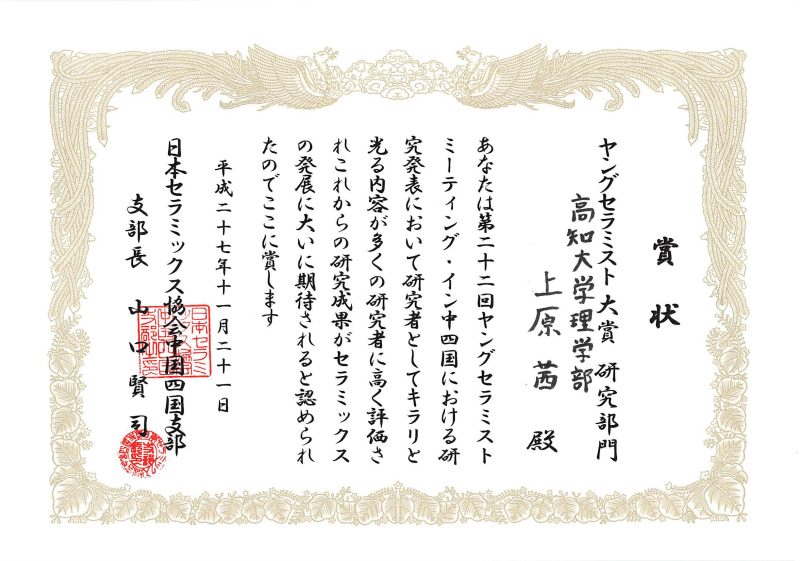 賞状
ヤングセラミスト大賞 研究部門
高知大学理学部
上原茜 殿
あなたは第二十二回ヤングセラミスト
ミーティング・イン中四国における研
究発表において研究者としてキラリと
光る内容が多くの研究者に高く評価さ
れこれからの研究成果がセラミックス
の発展に大いに期待されると認められ
たのでここに賞します
平成二十七年十一月二十一日
日本セラミックス協会中国四国支部
支部長 山口賢司